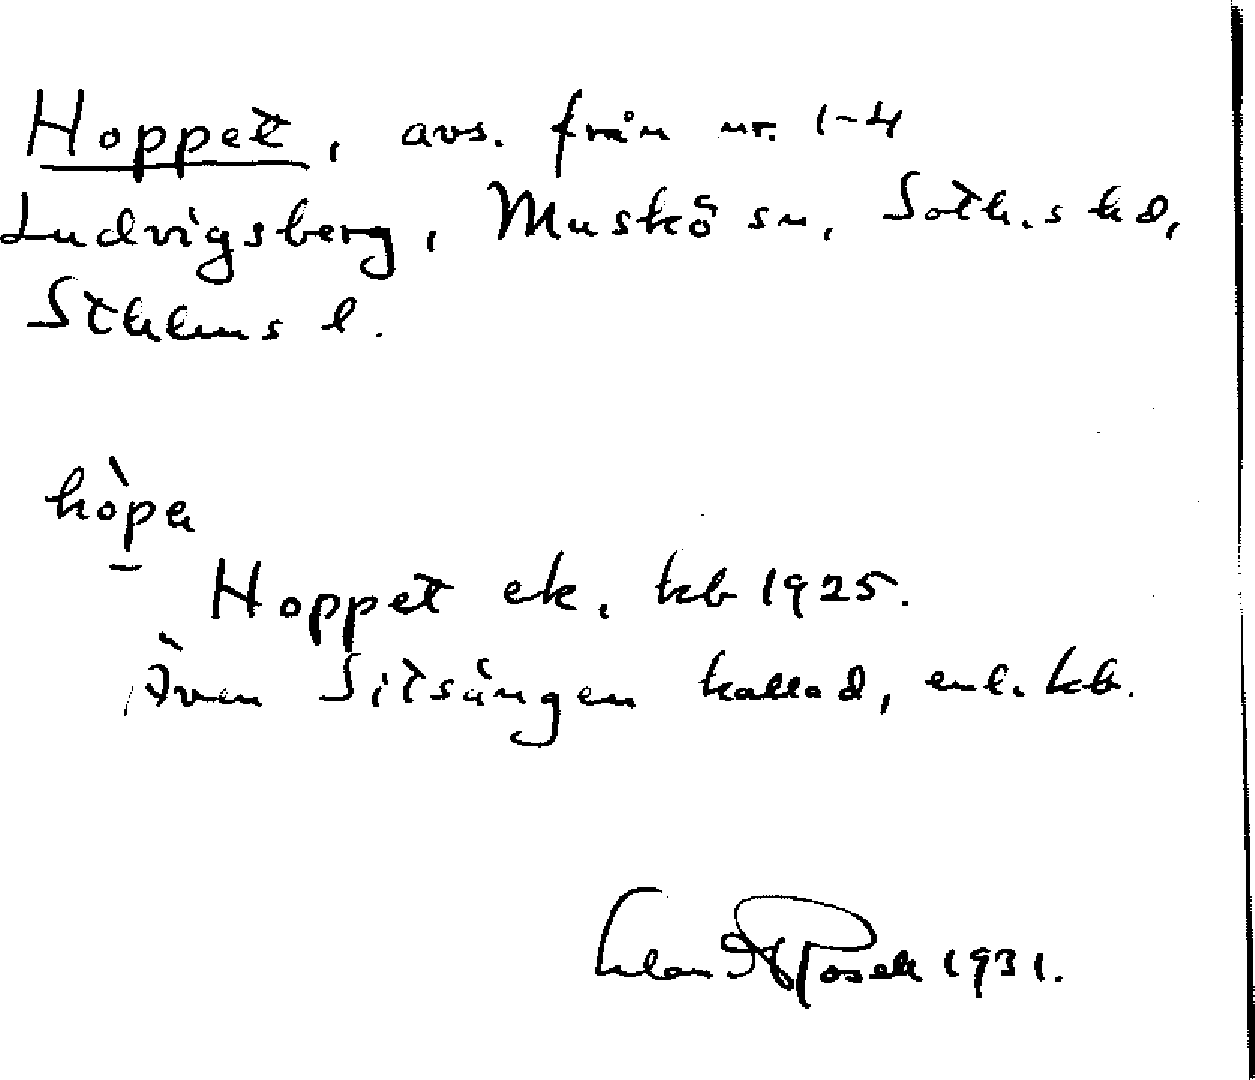 Hoppet, avs. från nr. 1-4
Ludvigsberg, Muskö sn, Soth.s hd,
Sthlms l.
hòpe
Hoppet ek. kb 1925.
Även Sitsängen kallad, enl. kb.
1931.